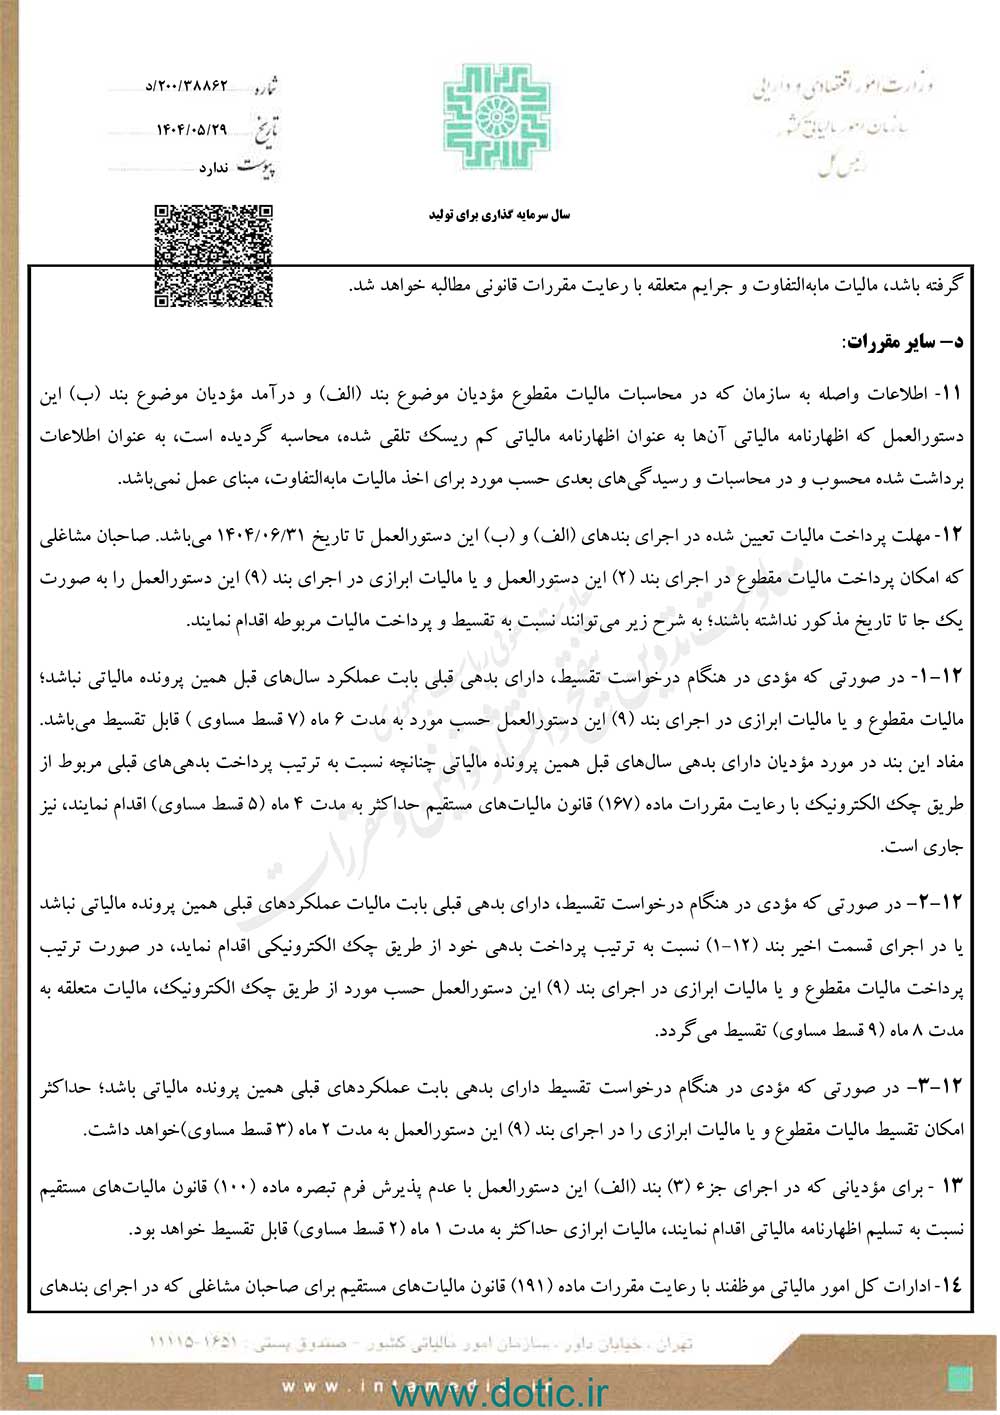 وزارت امور اقتصادی و دارایی
سازمان امور مالیاتی کشور
رئیس کل
شماره ۲۰۰/۳۸۸۶۲/د
تاریخ ۱۴۰۴/۰۵/۲۹
پیوست ندارد
سال سرمایه گذاری برای تولید
گرفته باشد، مالیات مابه‌التفاوت و جرایم متعلقه با رعایت مقررات قانونی مطالبه خواهد شد.
د- سایر مقررات:
۱۱- اطلاعات واصله به سازمان که در محاسبات مالیات مقطوع مؤدیان موضوع بند (الف) و درآمد مؤدیان موضوع بند (ب) این
دستورالعمل که اظهارنامه مالیاتی آن‌ها به عنوان اظهارنامه مالیاتی کم ریسک تلقی شده، محاسبه گردیده است، به عنوان اطلاعات
برداشت شده محسوب و در محاسبات و رسیدگی‌های بعدی حسب مورد برای اخذ مالیات مابه‌التفاوت، مبنای عمل نمی‌باشد.
۱۲- مهلت پرداخت مالیات تعیین شده در اجرای بندهای (الف) و (ب) این دستورالعمل تا تاریخ ۱۴۰۴/۰۶/۳۱ می‌باشد. صاحبان مشاغلی
که امکان پرداخت مالیات مقطوع در اجرای بند (۲) این دستورالعمل و یا مالیات ابرازی در اجرای بند (۹) این دستورالعمل را به صورت
یک جا تا تاریخ مذکور نداشته باشند؛ به شرح زیر می‌توانند نسبت به تقسیط و پرداخت مالیات مربوطه اقدام نمایند.
۱۲-۱- در صورتی که مؤدی در هنگام درخواست تقسیط، دارای بدهی قبلی بابت عملکرد سال‌های قبل همین پرونده مالیاتی نباشد؛
مالیات مقطوع و یا مالیات ابرازی در اجرای بند (۹) این دستورالعمل حسب مورد به مدت ۶ ماه (۷ قسط مساوی ) قابل تقسیط می‌باشد.
مفاد این بند در مورد مؤدیان دارای بدهی سال‌های قبل همین پرونده مالیاتی چنانچه نسبت به ترتیب پرداخت بدهی‌های قبلی مربوط از
طریق چک الکترونیک با رعایت مقررات ماده (۱۶۷) قانون مالیات‌های مستقیم حداکثر به مدت ۴ ماه (۵ قسط مساوی) اقدام نمایند، نیز
جاری است.
۱۲-۲- در صورتی که مؤدی در هنگام درخواست تقسیط، دارای بدهی قبلی بابت مالیات عملکردهای قبلی همین پرونده مالیاتی نباشد
یا در اجرای قسمت اخیر بند (۱۲-۱) نسبت به ترتیب پرداخت بدهی خود از طریق چک الکترونیکی اقدام نماید، در صورت ترتیب
پرداخت مالیات مقطوع و یا مالیات ابرازی در اجرای بند (۹) این دستورالعمل حسب مورد از طریق چک الکترونیک، مالیات متعلقه به
مدت ۸ ماه (۹ قسط مساوی) تقسیط می‌گردد.
۱۲-۳- در صورتی که مؤدی در هنگام درخواست تقسیط دارای بدهی بابت عملکردهای قبلی همین پرونده مالیاتی باشد؛ حداکثر
امکان تقسیط مالیات مقطوع و یا مالیات ابرازی را در اجرای بند (۹) این دستورالعمل به مدت ۲ ماه (۳ قسط مساوی)خواهد داشت.
۱۳ - برای مؤدیانی که در اجرای جزء (۳) بند (الف) این دستورالعمل با عدم پذیرش فرم تبصره ماده (۱۰۰) قانون مالیات‌های مستقیم
نسبت به تسلیم اظهارنامه مالیاتی اقدام نمایند، مالیات ابرازی حداکثر به مدت ۱ ماه (۲ قسط مساوی) قابل تقسیط خواهد بود.
۱۴- ادارات کل امور مالیاتی موظفند با رعایت مقررات ماده (۱۹۱) قانون مالیات‌های مستقیم برای صاحبان مشاغلی که در اجرای بندهای
معاونت تدوین، تنقیح و انتشار قوانین و مقررات
معاونت حقوقی ریاست جمهوری
تهران ، خیابان داور ، سازمان امور مالیاتی کشور - صندوق پستی : ۱۶۵۱-۱۱۱۱۵
www.intamedia.ir
www.dotic.ir